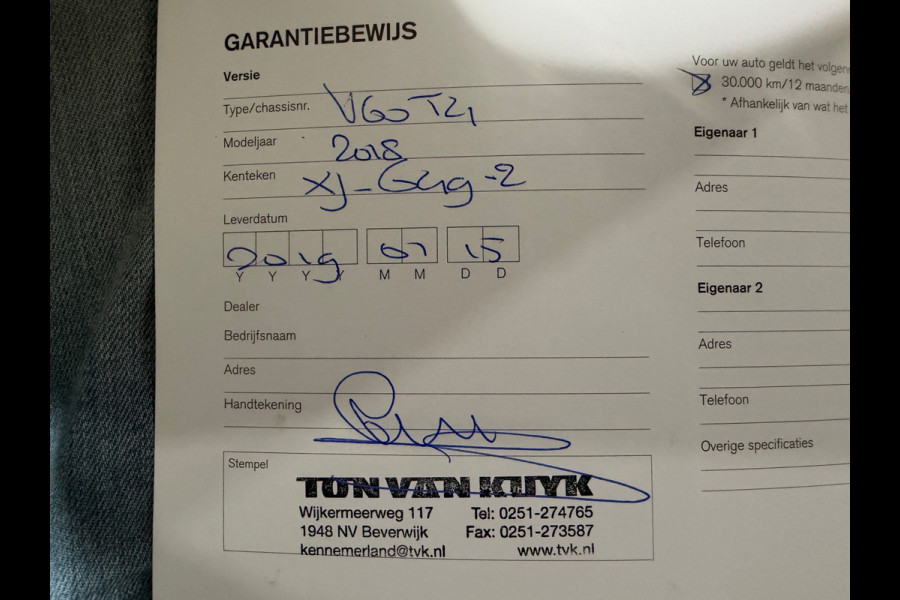 GARANTIEBEWIJS
Versie
Type/chassisnr. V60 T4
Modeljaar 2018
Kenteken XJ-649-Z
Leverdatum
2019 07 15
Y Y Y Y M M D D
Dealer
Bedrijfsnaam
Adres
Handtekening
Stempel
TON VAN KUYK
Wijkermeerweg 117 Tel: 0251-274765
1948 NV Beverwijk Fax: 0251-273587
kennemerland@tvk.nl www.tvk.nl
Voor uw auto geldt het volgen
30.000 km/12 maanden
* Afhankelijk van wat het
Eigenaar 1
Adres
Telefoon
Eigenaar 2
Adres
Telefoon
Overige specificaties